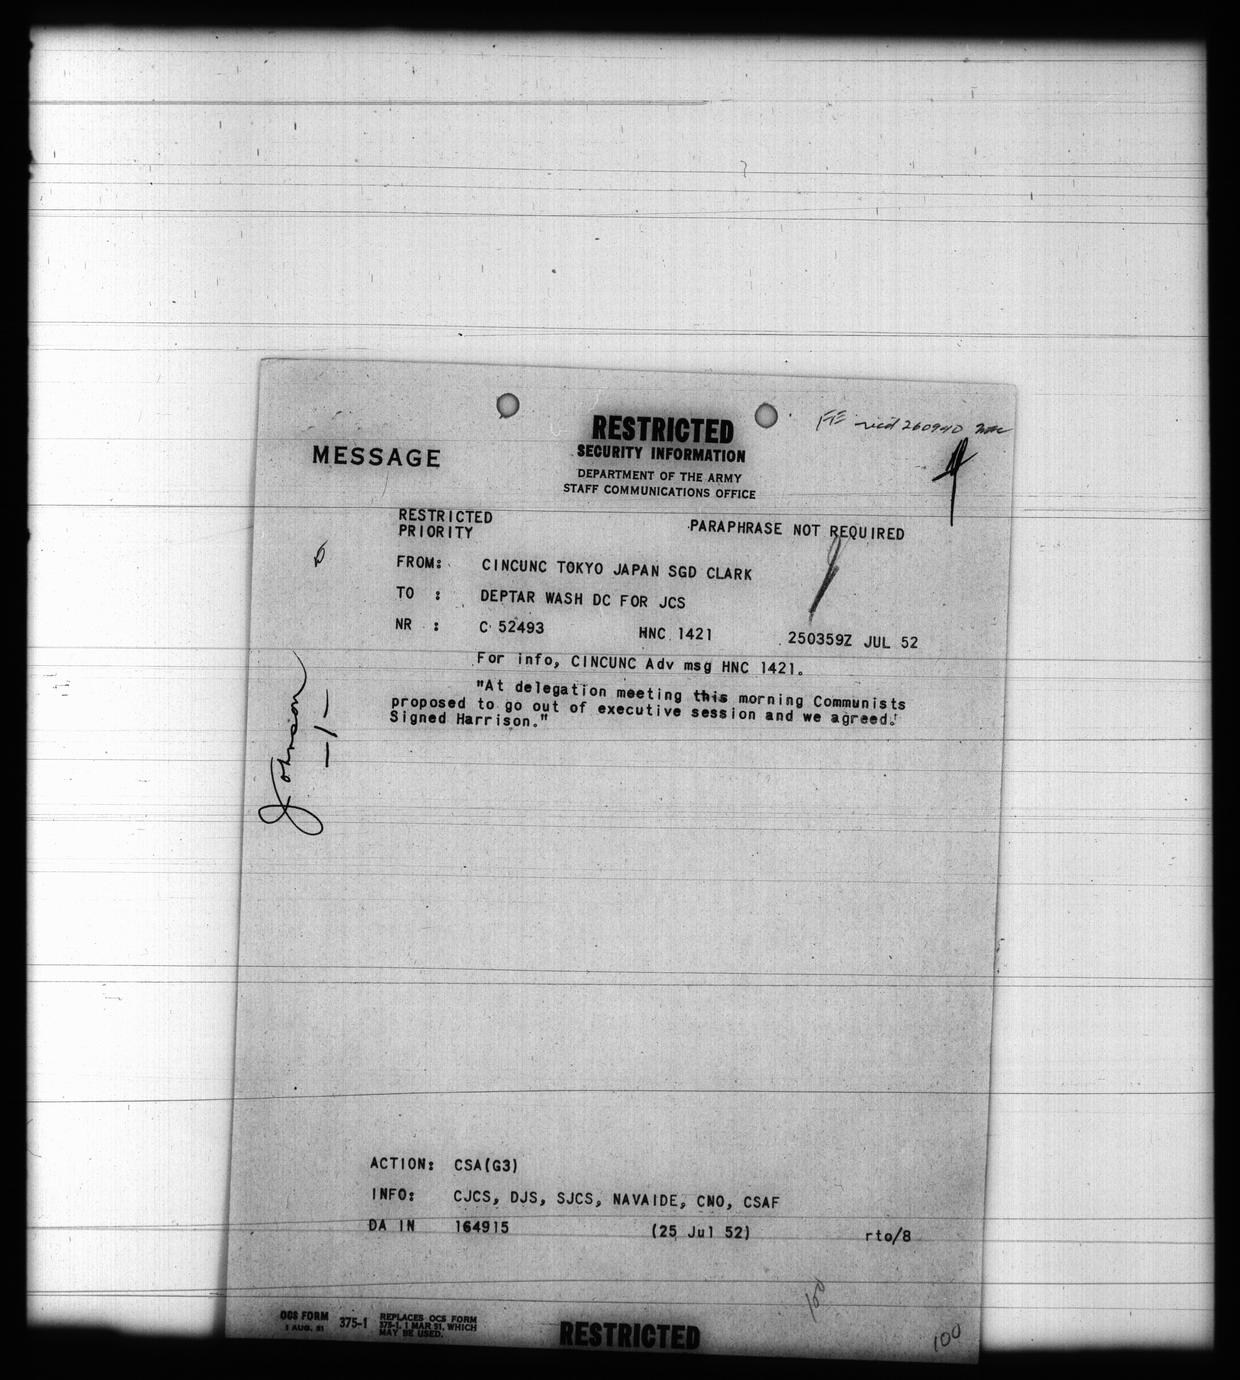 FE rec'd 260940
RESTRICTED
SECURITY INFORMATION
MESSAGE
DEPARTMENT OF THE ARMY
STAFF COMMUNICATIONS OFFICE
RESTRICTED PARAPHRASE NOT REQUIRED
PRIORITY
FROM: CINCUNC TOKYO JAPAN SGD CLARK
TO : DEPTAR WASH DC FOR JCS
NR : C 52493 HNC 1421 250359Z JUL 52
For info, CINCUNC Adv msg HNC 1421.
"At delegation meeting this morning Communists
proposed to go out of executive session and we agreed.
Signed Harrison."
Johnson
—1—
ACTION: CSA(G3)
INFO: CJCS, DJS, SJCS, NAVAIDE, CNO, CSAF
DA IN 164915 (25 Jul 52) rto/8
100
OCS FORM 375-1 REPLACES OCS FORM
1 AUG. 51 375-1, 1 MAR 51, WHICH
MAY BE USED.
RESTRICTED
100